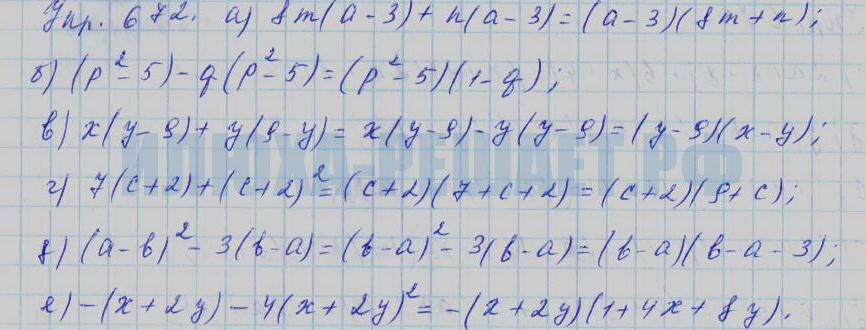 Упр. 672. а) 8m(a-3)+n(a-3)=(a-3)(8m+n);
б) (p²-5)-q(p²-5)=(p²-5)(1-q);
в) x(y-9)+y(9-y)=x(y-9)-y(y-9)=(y-9)(x-y);
ИЛЮХА-РЕШАЕТ.РФ
г) 7(c+2)+(c+2)²=(c+2)(7+c+2)=(c+2)(9+c);
д) (a-b)²-3(b-a)=(b-a)²-3(b-a)=(b-a)(b-a-3);
е) -(x+2y)-4(x+2y)²=-(x+2y)(1+4x+8y).